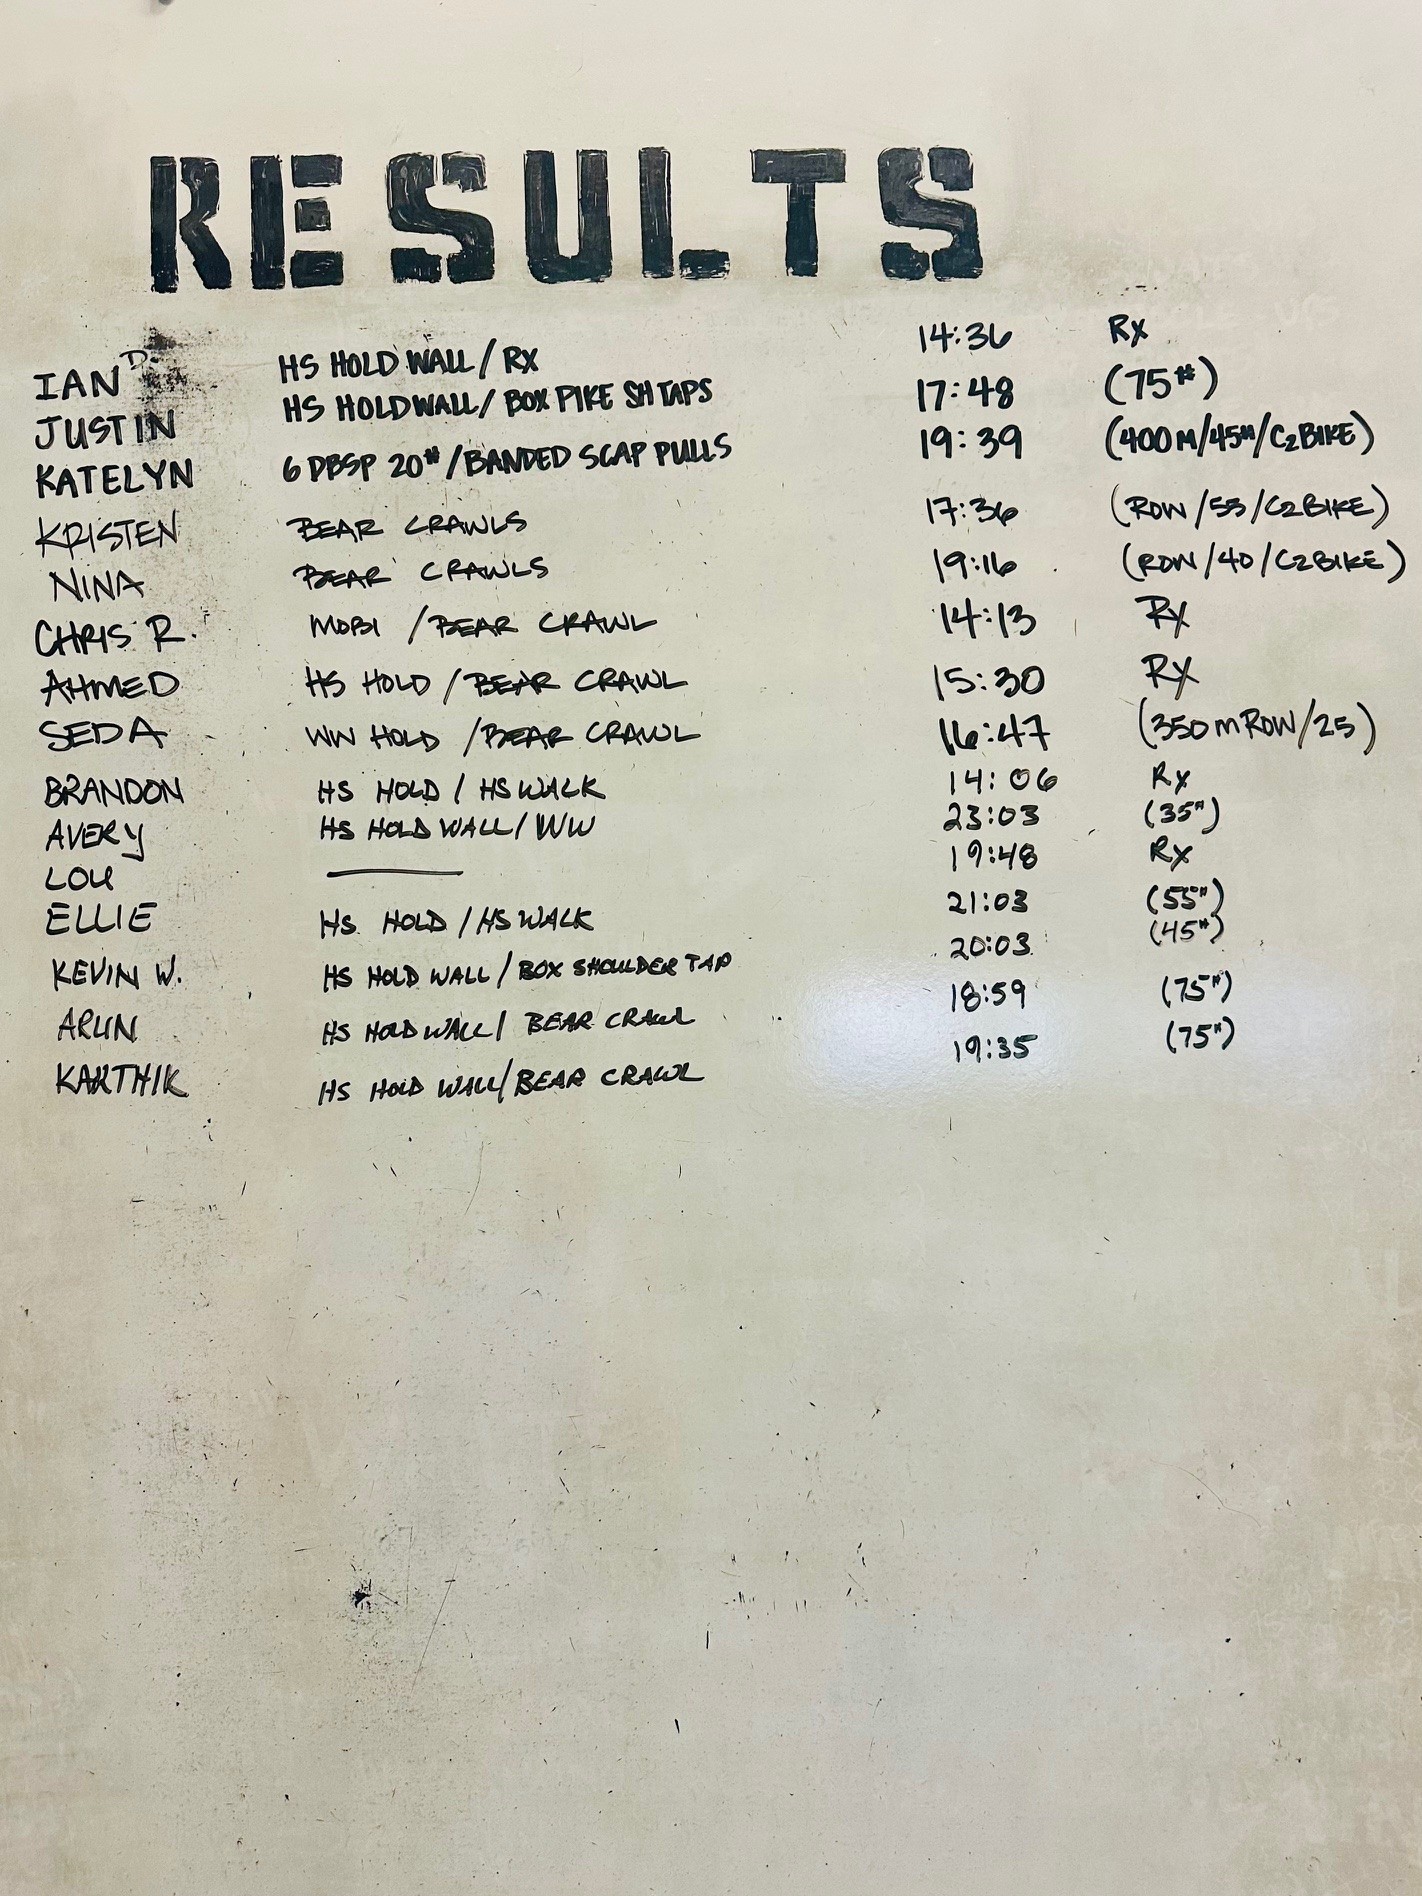 RESULTS
IAN D. HS HOLD WALL / RX 14:36 Rx
JUSTIN HS HOLD WALL / BOX PIKE SH TAPS 17:48 (75#)
KATELYN 6 DBSP 20# / BANDED SCAP PULLS 19:39 (400M/45#/C2BIKE)
KRISTEN BEAR CRAWLS 17:36 (ROW/55/C2BIKE)
NINA BEAR CRAWLS 19:16 (ROW/40/C2BIKE)
CHRIS R. MOBI / BEAR CRAWL 14:13 Rx
AHMED HS HOLD / BEAR CRAWL 15:30 Rx
SEDA WW HOLD / BEAR CRAWL 16:47 (350m ROW/25)
BRANDON HS HOLD / HS WALK 14:06 Rx
AVERY HS HOLD WALL / WW 23:03 (35#)
LOU 19:48 Rx
ELLIE HS HOLD / HS WALK 21:03 (55#)
KEVIN W. HS HOLD WALL / BOX SHOULDER TAP 20:03 (45#)
ARUN HS HOLD WALL / BEAR CRAWL 18:59 (75#)
KARTHIK HS HOLD WALL / BEAR CRAWL 19:35 (75#)